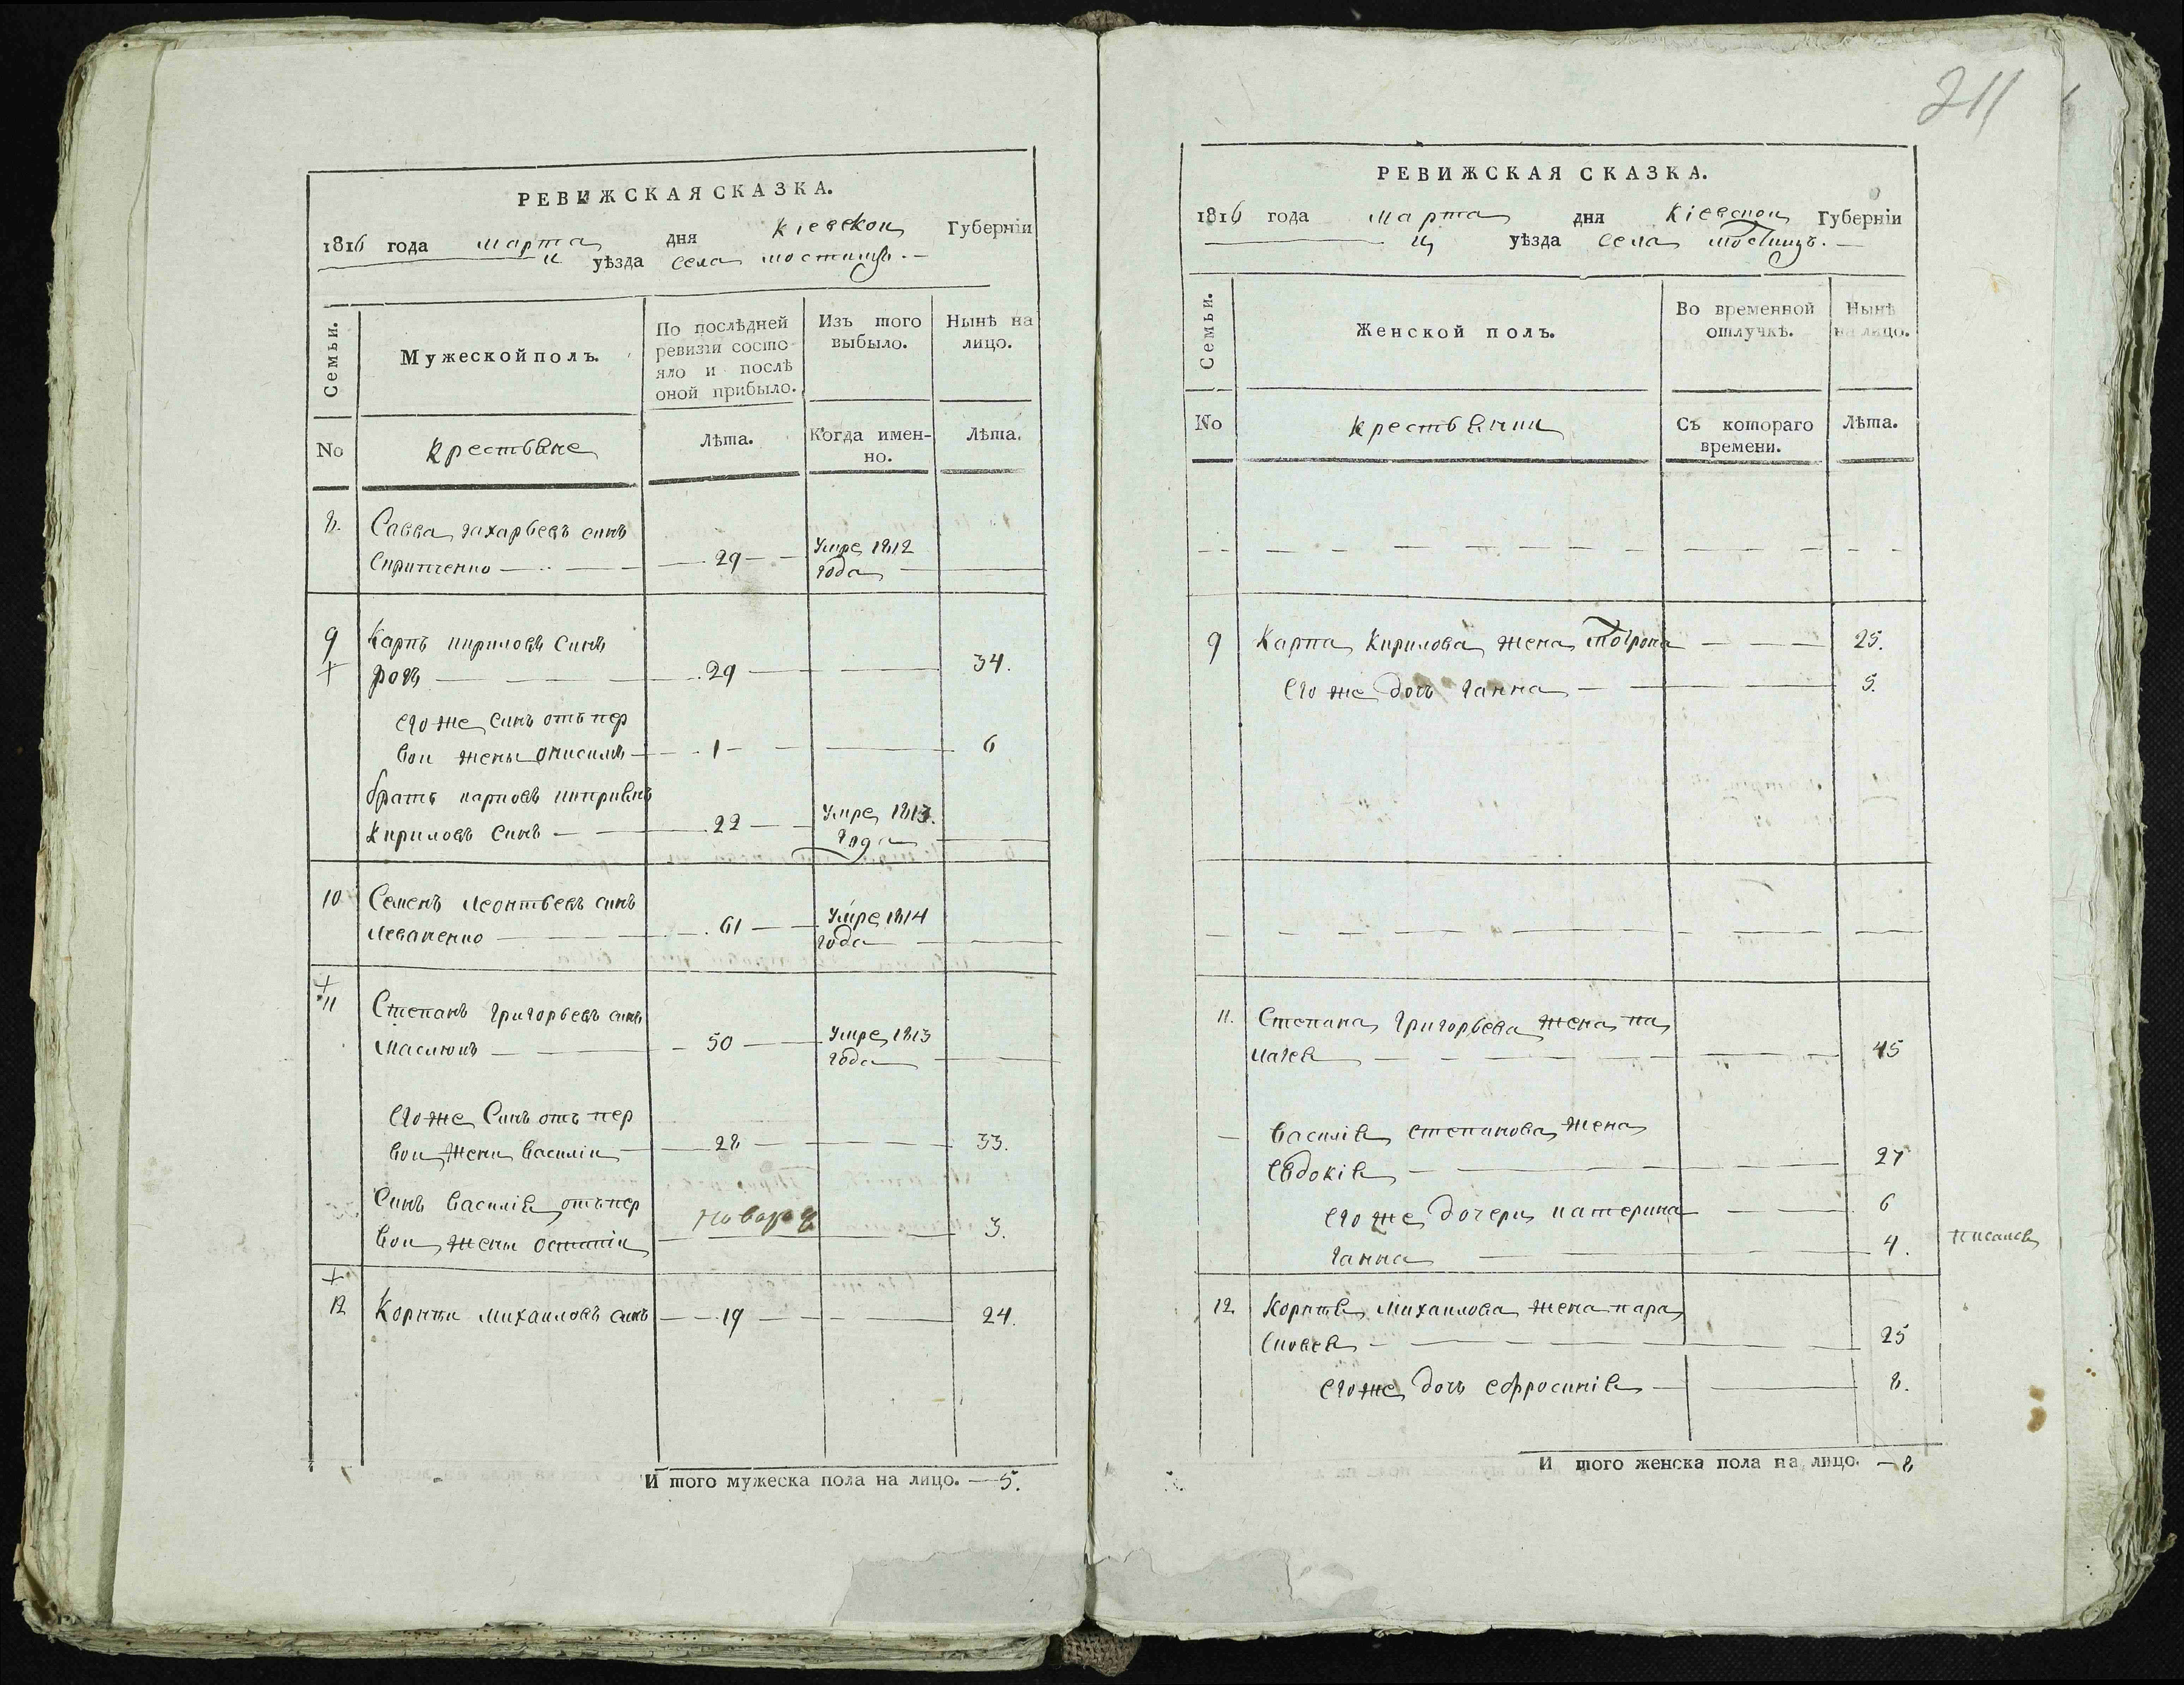 РЕВИЖСКАЯ СКАЗКА.
1816 года марта дня Кіевской Губерніи
уѣзда села мостищъ.
Семьи.
Мужеской полъ.
По послѣдней
ревизіи состо-
яло и послѣ
оной прибыло.
Изъ того
выбыло.
Нынѣ на
лицо.
No
крестьяне
Лѣта.
Когда имен-
но.
Лѣта.
8. Савва захарьевъ синъ
29 Умре 1812
года
9 Карпъ кириловъ Синъ
29 34.
его же синъ отъ пер
вои жены Онисимъ 1 6
братъ карповъ
Кириловъ Синъ 22 Умре 1813.
года
10 Семенъ леонтьевъ синъ
61 Умре 1814
года
11 Степанъ григорьевъ синъ
маслюкъ 50 Умре 1813
года
его же Синъ отъ пер
вои жени василіи 28 33.
Синъ василія отъ пер
вои жены остапіи 3.
12 Корнѣи михаиловъ синъ 19 24.
И того мужеска пола на лицо. 5.
211
РЕВИЖСКАЯ СКАЗКА.
1816 года марта дня Кіевской Губерніи
уѣзда села мостищъ.
Семьи.
Женской полъ.
Во временной
отлучкѣ.
Нынѣ
на лицо.
No
крестьянки
Съ котораго
времени.
Лѣта.
9 Карпа Кирилова жена 25.
его же дочъ ганна 5.
11. Степана григорьева жена па
лагея 45
василія степанова жена
евдокія 27
его же дочери катерина 6
ганна 4.
12 Корнѣя михаилова жена пара
сковея 25
его же дочъ ефросинія 8.
И того женска пола на лицо. 8